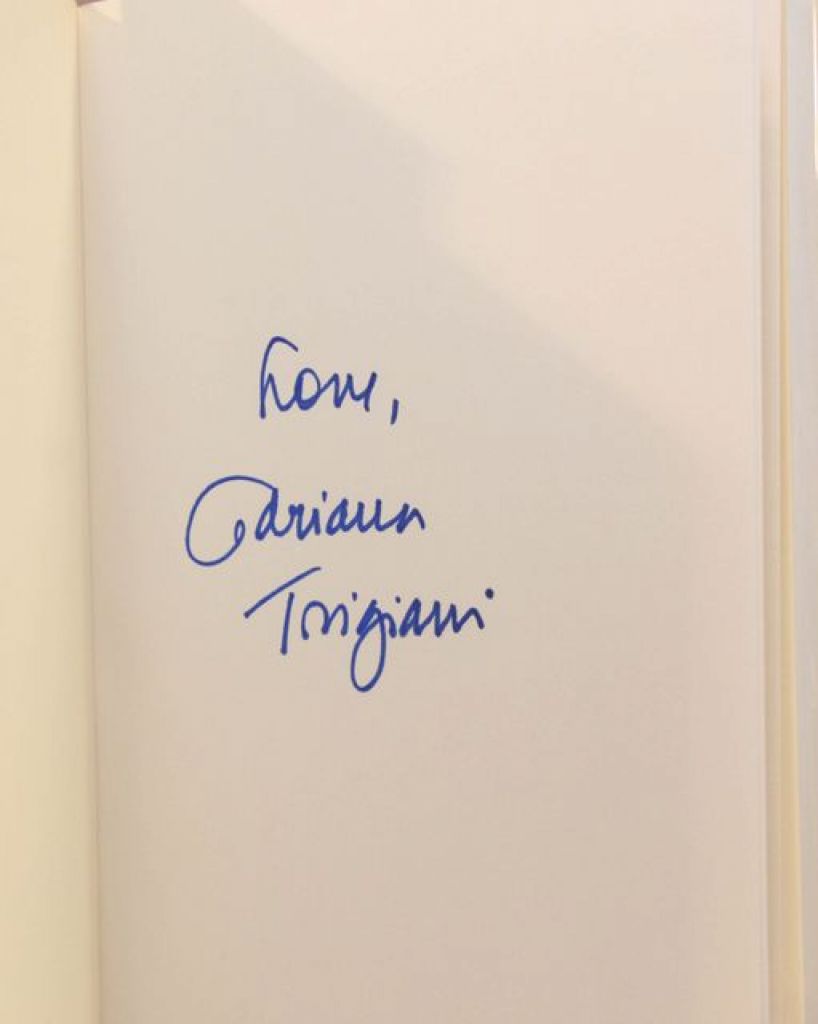 Love,
Adriana
Trigiani